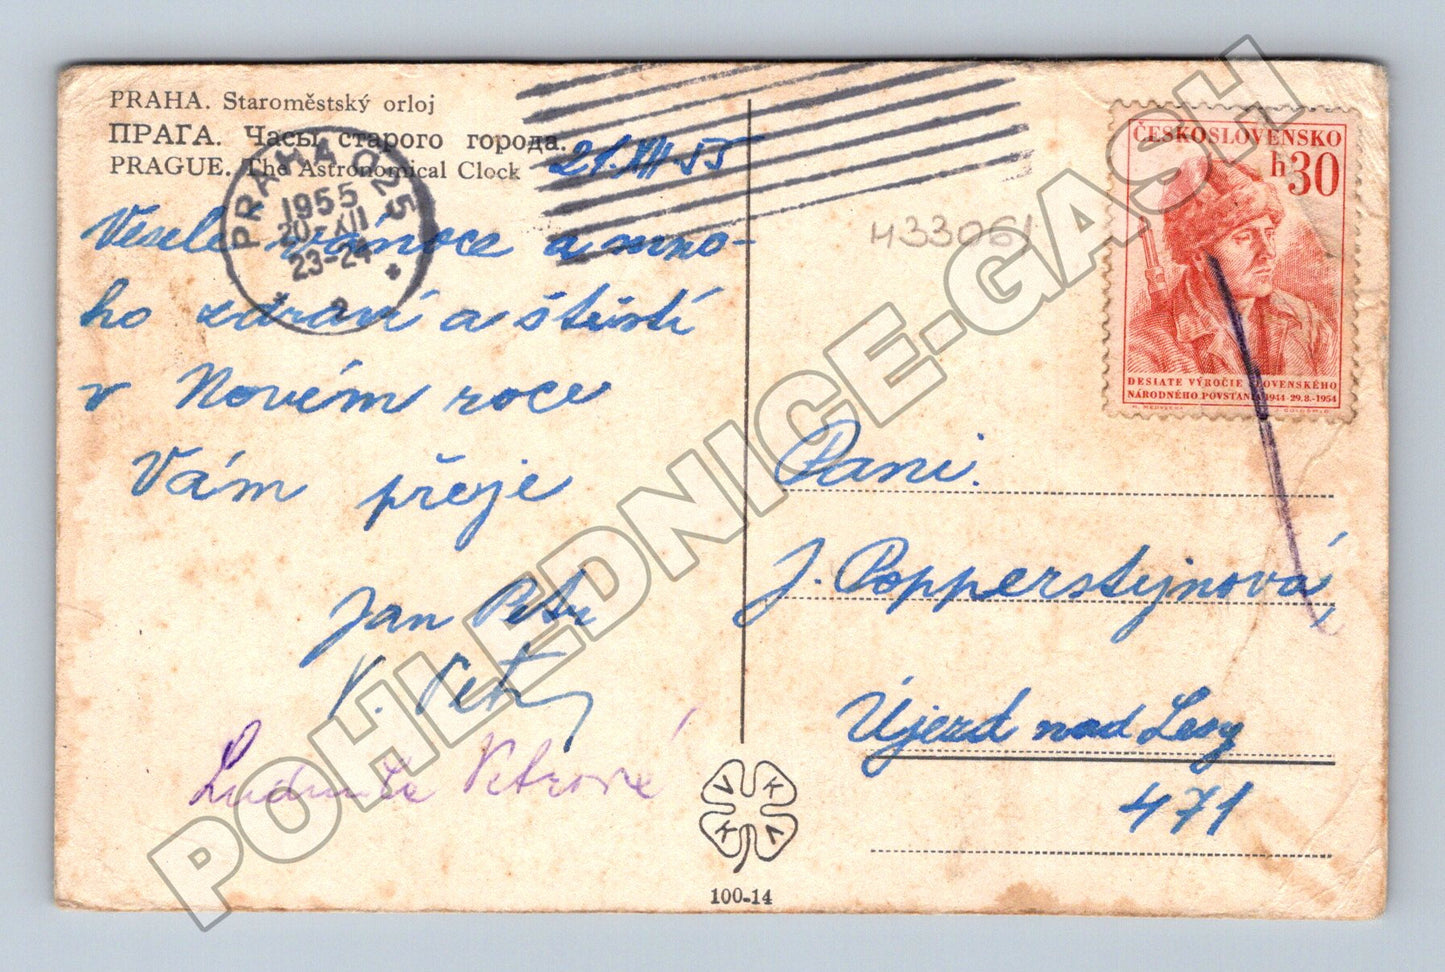 PRAHA. Staroměstský orloj
ПРАГА. Часы старого города.
PRAGUE. The Astronomical Clock
21.XII 55
PRAHA 025
1955
20.XII
23-24
a
Veselé vánoce a mno-
ho zdraví a štěstí
v Novém roce
Vám přeje
Jan Petr
V. Petr
Ludmila Petrová
433061
ČESKOSLOVENSKO
h30
DESIATE VÝROČIE SLOVENSKÉHO
NÁRODNÉHO POVSTANIA 1944-29.8.-1954
Paní.
J. Popperstejnová
Újezd nad Lesy
471
V K
K V
100-14
POHLEDNICE-GASH